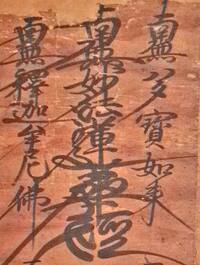 南無多寶如来
南無妙法蓮華経
南無釋迦牟尼佛